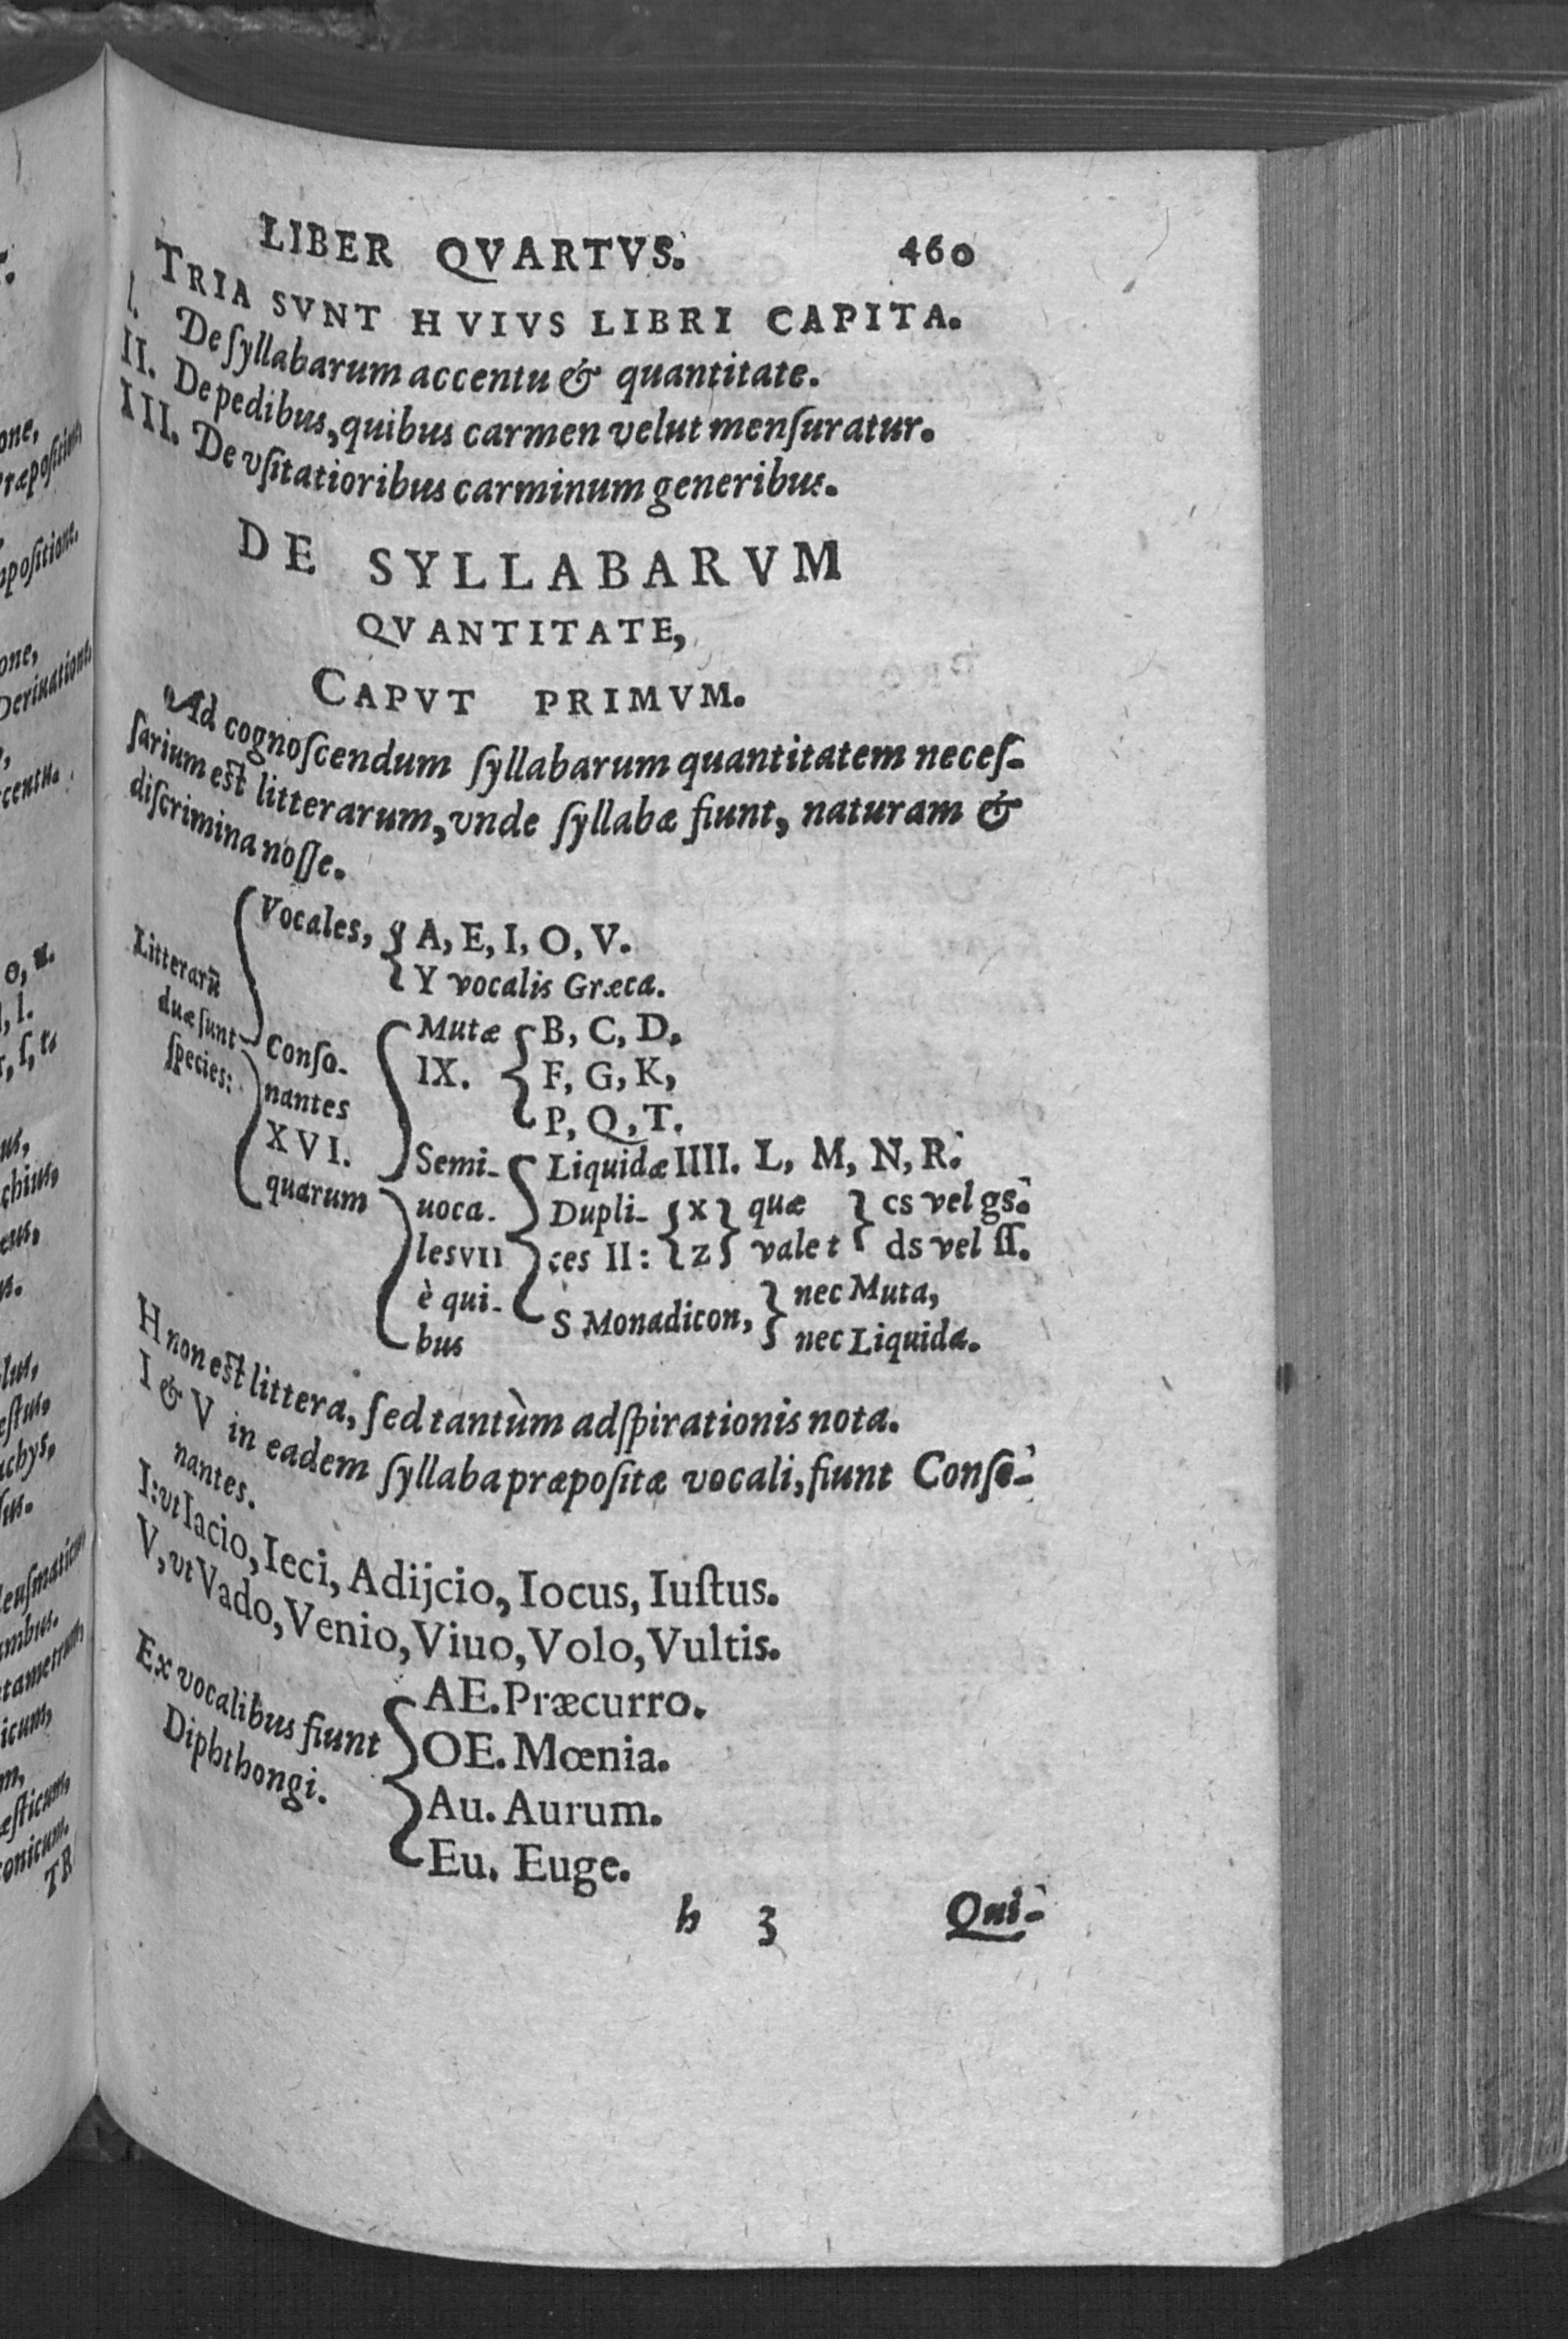 LIBER QVARTVS. 460
TRIA SVNT HVIVS LIBRI CAPITA.
I. De ſyllabarum accentu & quantitate.
II. De pedibus, quibus carmen velut menſuratur.
III. De vſitatioribus carminum generibus.
DE SYLLABARVM
QVANTITATE,
CAPVT PRIMVM.
Ad cognoſcendum ſyllabarum quantitatem neceſ-
ſarium est litterarum, vnde ſyllabæ fiunt, naturam &
diſcrimina noſſe.
Litterarũ
duæ ſunt
ſpecies:
Vocales,
A, E, I, O, V.
Y vocalis Græca.
Conſo-
nantes
XVI.
quarum
Mutæ
IX.
B, C, D,
F, G, K,
P, Q, T.
Semi-
uoca-
les VII
è qui-
bus
Liquidæ IIII. L, M, N, R.
Dupli-
ces II:
X
Z
quæ
valet
cs vel gs.
ds vel ſſ.
S Monadicon,
nec Muta,
nec Liquida.
H non est littera, ſed tantùm adſpirationis nota.
I & V in eadem ſyllaba præpoſitæ vocali, fiunt Conſo-
nantes.
I: vt Iacio, Ieci, Adijcio, Iocus, Iuſtus.
V, vt Vado, Venio, Viuo, Volo, Vultis.
Ex vocalibus fiunt
Diphthongi.
AE. Præcurro.
OE. Mœnia.
Au. Aurum.
Eu. Euge.
h 3 Qui-